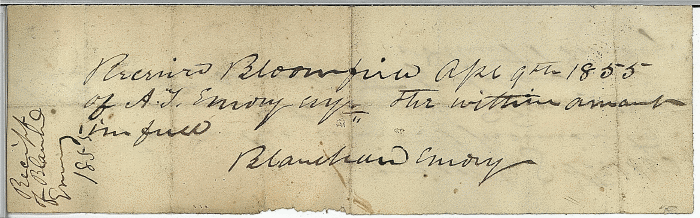 Received Bloomfield Apl 9th 1855
of A. T. Emory the within amount
in full
Blanchard Emory
Receipt
of Blanchd
Emory
185